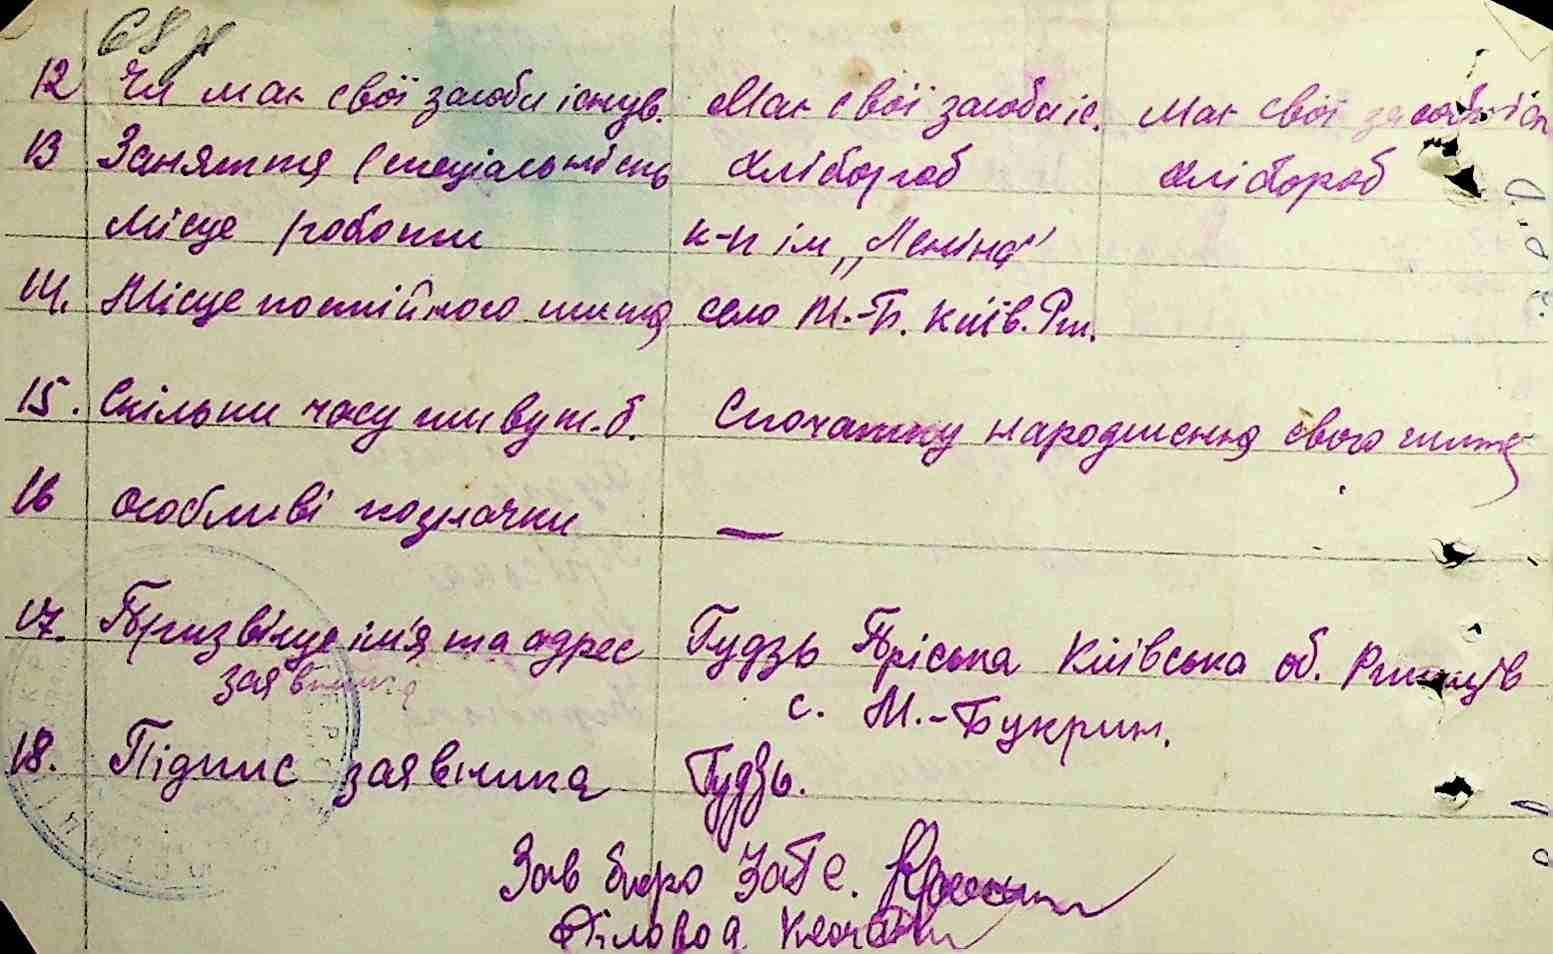 68
12 Чи має свої засоби існув. Має свої засоби іс. Має свої засоби іс
13 Заняття (спеціальність Хлібороб Хлібороб
Місце роботи к-п ім „Леніна"
14. Місце постійного життя село М.-Б. Київ. Рж.
15. Скільки часу живуть.б. Спочатку народження свого життя
16 Особливі позначки —
17. Призвіще ім'я та адрес Гудзь Пріська Київська об. Ржищів
заявника с. М.-Букрин.
18. Підпис заявника Гудзь.
Зав бюро ЗАГС.
Діловод